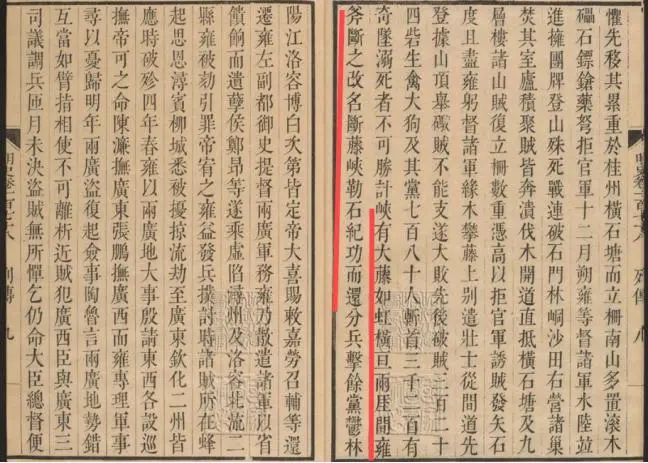 列傳 八
懼先移其累重於桂州橫石塘而立柵南山多置滾木
礧石鏢鎗藥弩拒官軍十二月朔雍等督諸軍水陸並
進擁團牌登山殊死戰連破石門林峒沙田右營諸巢
焚其室廬積聚賊皆奔潰伐木開道直抵橫石塘及九
層樓諸山賊復立柵數重憑高以拒官軍誘賊發矢石
度且盡雍躬督諸軍緣木攀藤上別遣壯士從間道先
登據山頂舉礮賊不能支遂大敗先後破賊三百二十
四砦生禽大狗及其黨七百八十人斬首三千二百有
奇墜溺死者不可勝計峽有大藤如虹橫亘兩厓間雍
斧斷之改名斷藤峽勒石紀功而還分兵擊餘黨鬱林
陽江洛容博白次第皆定帝大喜賜敕嘉勞召輔等還
遷雍左副都御史提督兩廣軍務雍乃散遣諸軍以省
饋餉而遺孽侯鄭昂等遂乘虛陷潯州及洛容北流二
縣雍被劾引罪帝宥之雍益發兵撲討時諸賊所在蜂
起思恩潯賓柳城悉被擾掠流劫至廣東欽化二州皆
應時破殄四年春雍以兩廣地大事殷請東西各設巡
撫帝可之命陳濂撫廣東張鵬撫廣西而雍專理軍事
尋以憂歸明年兩廣盜復起僉事陶魯言兩廣地勢錯
互當如臂指相使不可離析近賊犯廣西臣與廣東三
司議調兵匝月未決盜賊無所憚乞仍命大臣總督便
明史卷一百七十八 列傳 九